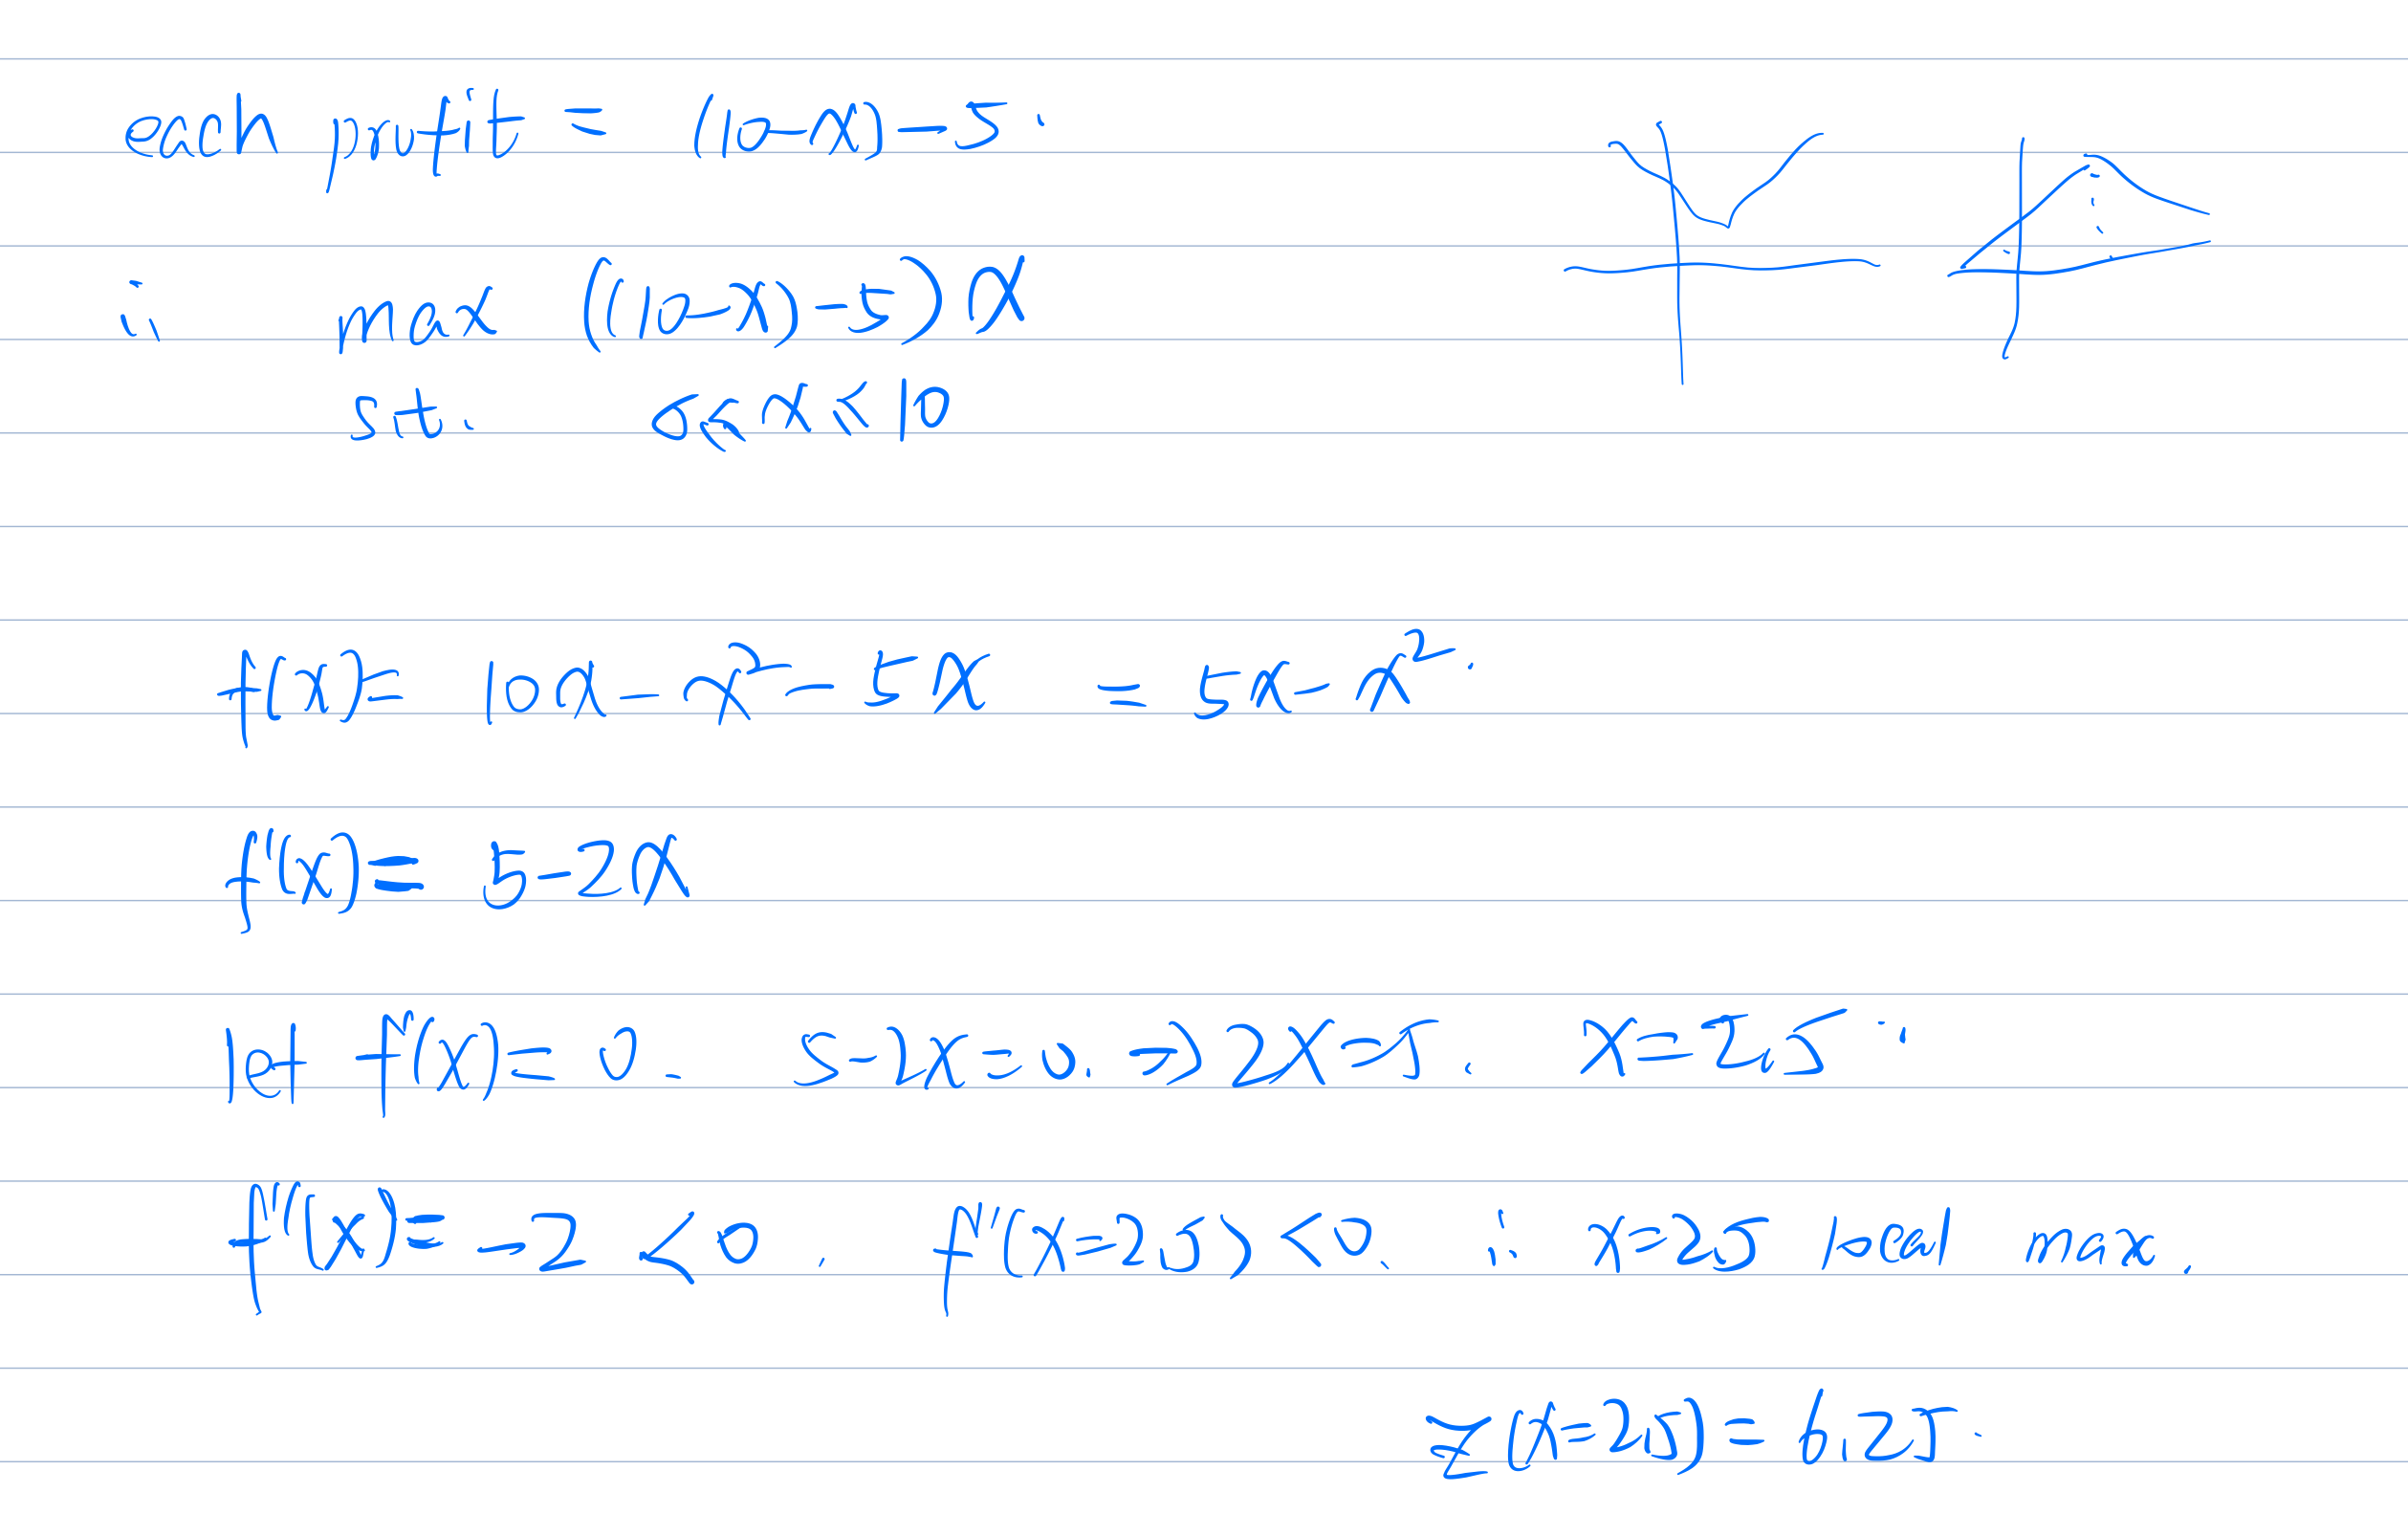 each profit = (10-x)-5.
∴ max ((10-x)-5)x
s.t. 0≤x≤10
f(x)= 10x-x²-5x = 5x-x².
f'(x)= 5-2x
let f'(x)=0. 5-2x=0. => 2x=5. x=2.5.
f''(x)= -2<0. f''(x=2.5)<0. ∴ x=2.5 local max.
Z(x=2.5)=6.25.